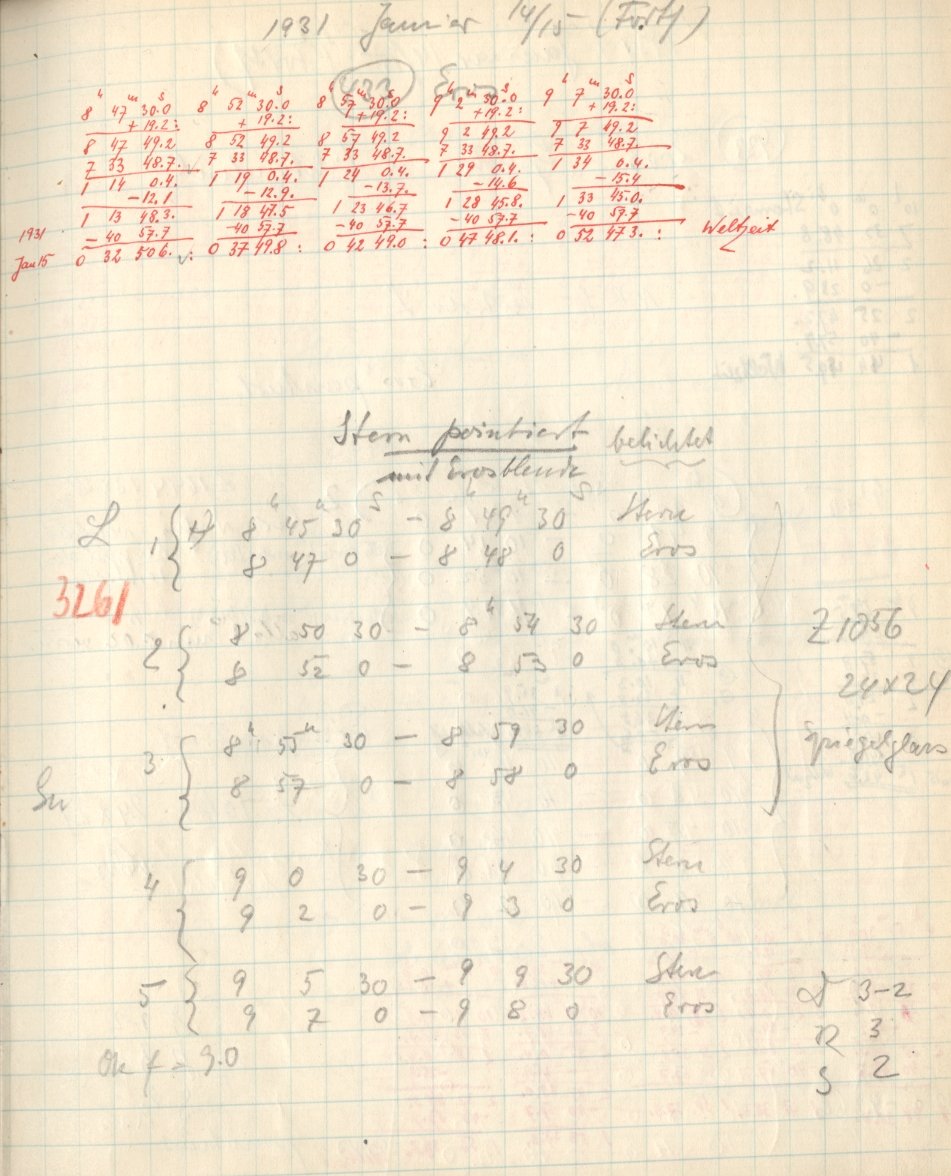 1931 Januar 14/15 (Forts)
433 Eros
h m s h m s h m s h m s h m s
8 47 30.0 8 52 30.0 8 57 30.0 9 2 30.0 9 7 30.0
+19.2: +19.2: +19.2: +19.2: +19.2:
8 47 49.2 8 52 49.2 8 57 49.2 9 2 49.2 9 7 49.2
7 33 48.7. 7 33 48.7. 7 33 48.7. 7 33 48.7. 7 33 48.7.
1 14 0.4. 1 19 0.4. 1 24 0.4. 1 29 0.4. 1 34 0.4.
-12.1 -12.9. -13.7. -14.6 -15.4
1 13 48.3. 1 18 47.5 1 23 46.7 1 28 45.8. 1 33 45.0.
1931 -40 57.7 -40 57.7 -40 57.7 -40 57.7 -40 57.7 Weltzeit
Jan 15 0 32 50.6.: 0 37 49.8: 0 42 49.0: 0 47 48.1.: 0 52 47.3.:
Stern pointiert belichtet
mit Erosblende
L 1 { 8h 45m 30s - 8h 49m 30s Stern
8 47 0 - 8 48 0 Eros
3261
2 { 8 50 30 - 8h 54 30 Stern
8 52 0 - 8 53 0 Eros
Z 1056
24x24
Spiegelglas
3 { 8h 55m 30 - 8 59 30 Stern
8 57 0 - 8 58 0 Eros
4 { 9 0 30 - 9 4 30 Stern
9 2 0 - 9 3 0 Eros
5 { 9 5 30 - 9 9 30 Stern
9 7 0 - 9 8 0 Eros
3-2
R 3
S 2
f = 9.0